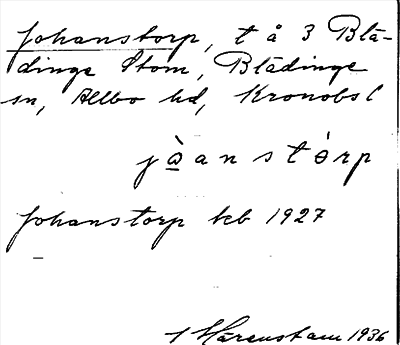 Johanstorp, t å 3 Blä-
dinge Stom, Blädinge
sn, Allbo hd, Kronobsl
jòanstórp
Johanstorp kb 1927
Härenstam 1936